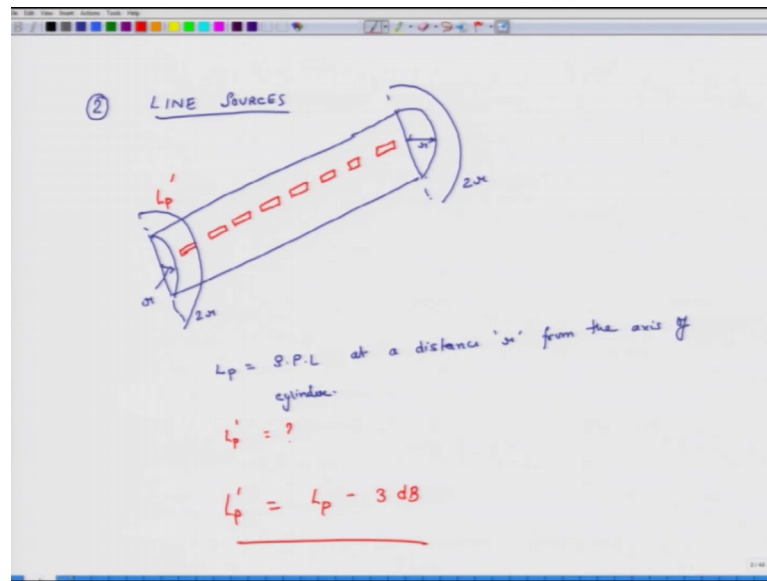 ② LINE SOURCES
r
2r
Lp'
r
2r
Lp = S.P.L at a distance 'r' from the axis of
cylinder.
Lp' = ?
Lp' = Lp - 3 dB